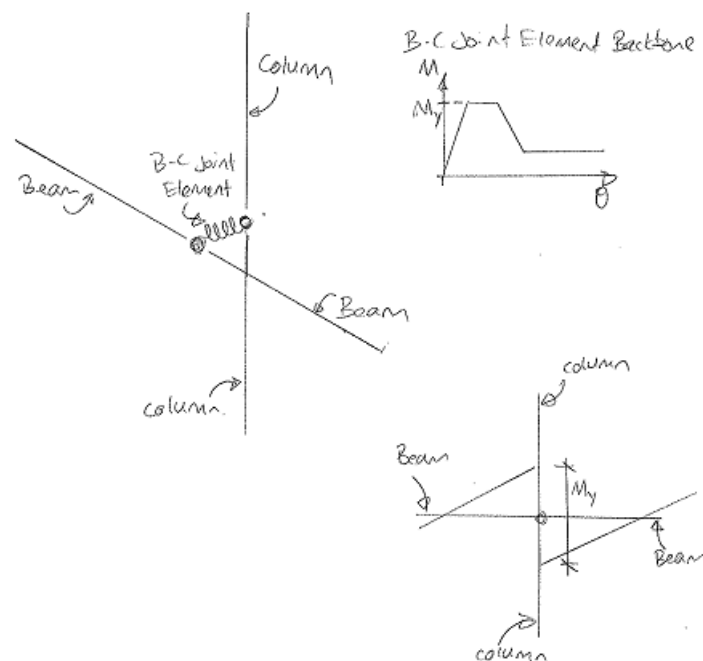 Column
B-C Joint
Element
Beam
Beam
column
B-C Joint Element Backbone
M
My
θ
column
Beam
My
Beam
column